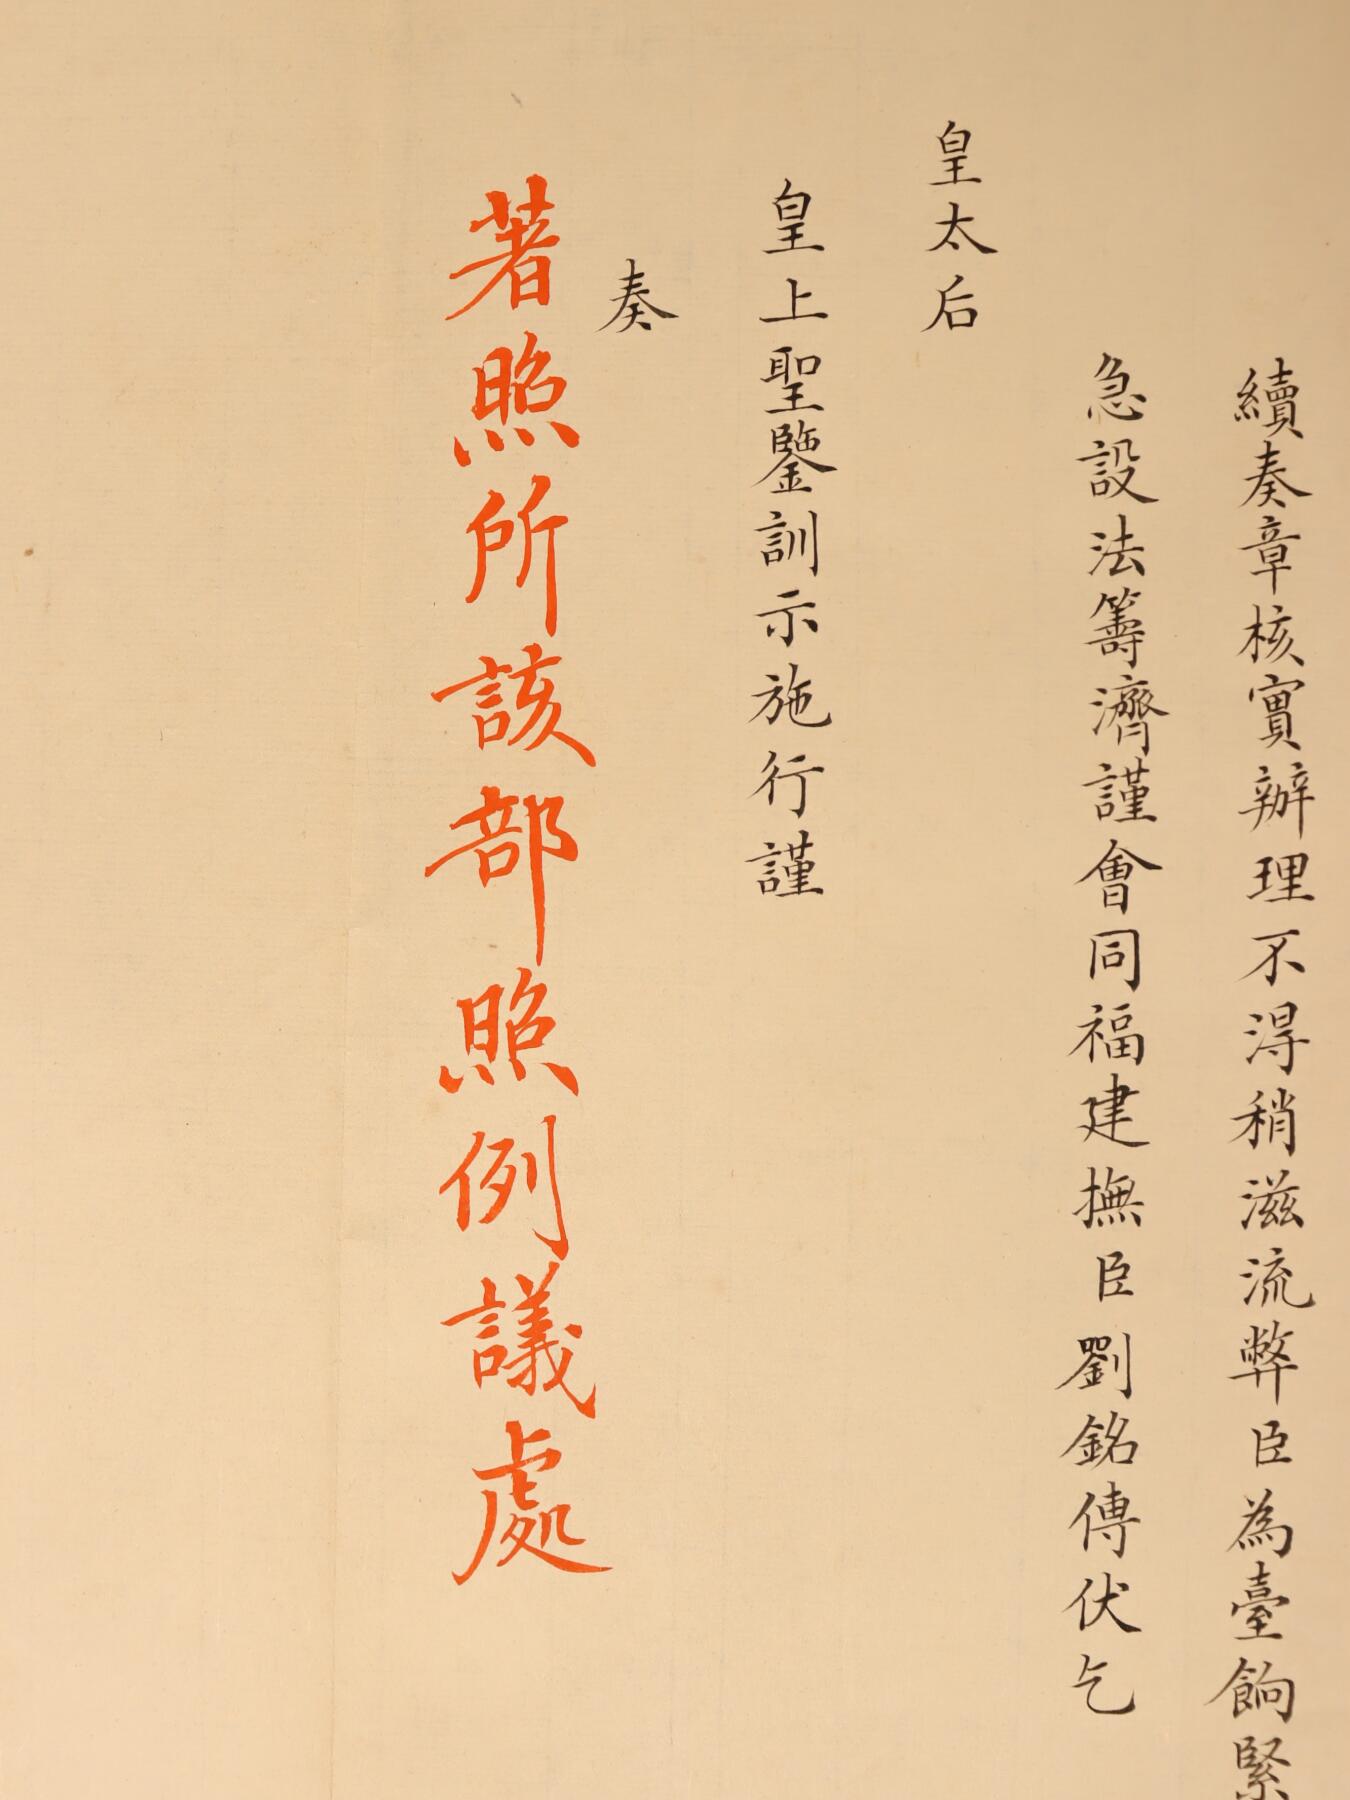 續奏章核實辦理不得稍滋流弊臣為臺餉緊
急設法籌濟謹會同福建撫臣劉銘傳伏乞
皇太后
皇上聖鑒訓示施行謹
奏
著照所該部照例議處